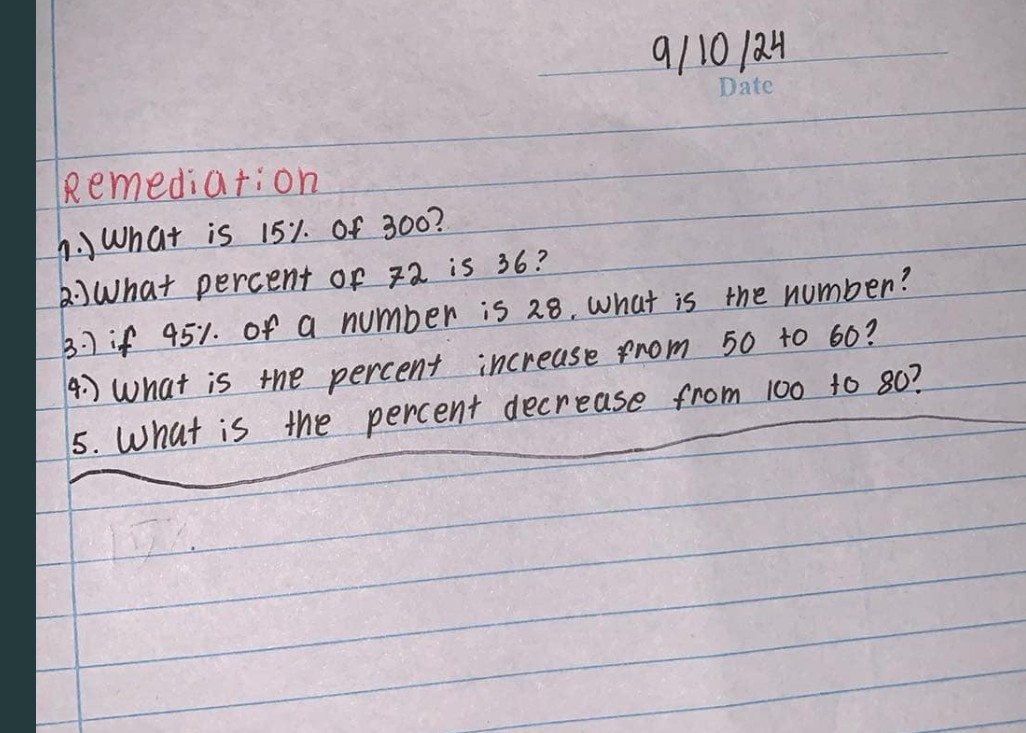 9/10/24
Date
Remediation
1.) What is 15% of 300?
2.) What percent of 72 is 36?
3.) if 45% of a number is 28, what is the number?
4.) What is the percent increase from 50 to 60?
5. What is the percent decrease from 100 to 80?